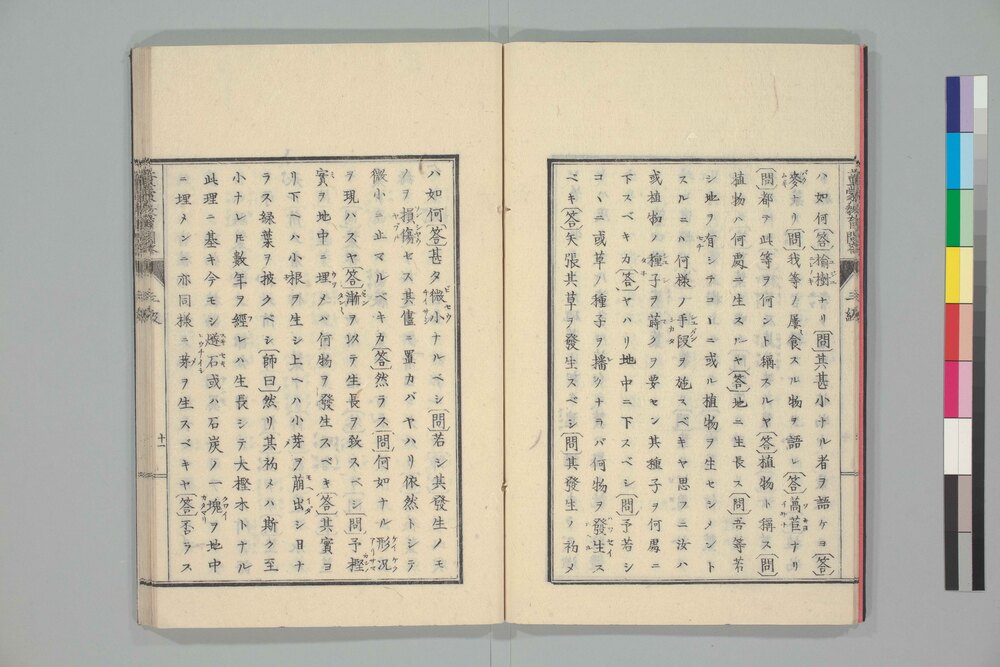 ハ如何〔答〕榆樹ナリ〔問〕其甚小ナル者ヲ語ケヨ〔答〕
麥ナリ〔問〕我等ノ屢食スル物ヲ語レ〔答〕萵苣ナリ
〔問〕都テ此等ヲ何ント稱スルヤ〔答〕植物ト稱ス〔問〕
植物ハ何處ニ生スルヤ〔答〕地ニ生長ス〔問〕吾等若
シ地ヲ有シテコヽニ或ル植物ヲ生セシメント
スルニハ何樣ノ手段ヲ施スベキヤ思フニ汝ハ
或植物ノ種子ヲ蒔クヲ要セン其種子ヲ何處ニ
下スベキカ〔答〕ヤハリ地中ニ下スベシ〔問〕予若シ
コヽニ或草ノ種子ヲ播クナラバ何物ヲ發生ス
ベキ〔答〕矢張其草ヲ發生スベシ〔問〕其發生ノ初メ
ハ如何〔答〕甚タ微小ナルベシ〔問〕若シ其發生ノモ
ノヲ損傷セス其儘ニ置カバヤハリ依然トシテ
微小ニ止マルベキカ〔答〕然ラス〔問〕何如ナル形况
ヲ現ハスヤ〔答〕漸ヲ以テ生長ヲ致スベシ〔問〕予樫
實ヲ地中ニ埋メハ何物ヲ發生スベキ〔答〕其實ヨ
リ下ヘハ小根ヲ生シ上ヘハ小芽ヲ萠出シ日ナ
ラス綠葉ヲ披クベシ〔師曰〕然リ其初メハ斯ク至
小ナレ𪜈數年ヲ經レハ生長シテ大樫木トナル
此理ニ基キ今モシ燧石或ハ石炭ノ一塊ヲ地中
ニ埋メンニ亦同樣ニ芽ヲ生スベキヤ〔答〕否ラス
三編
十一